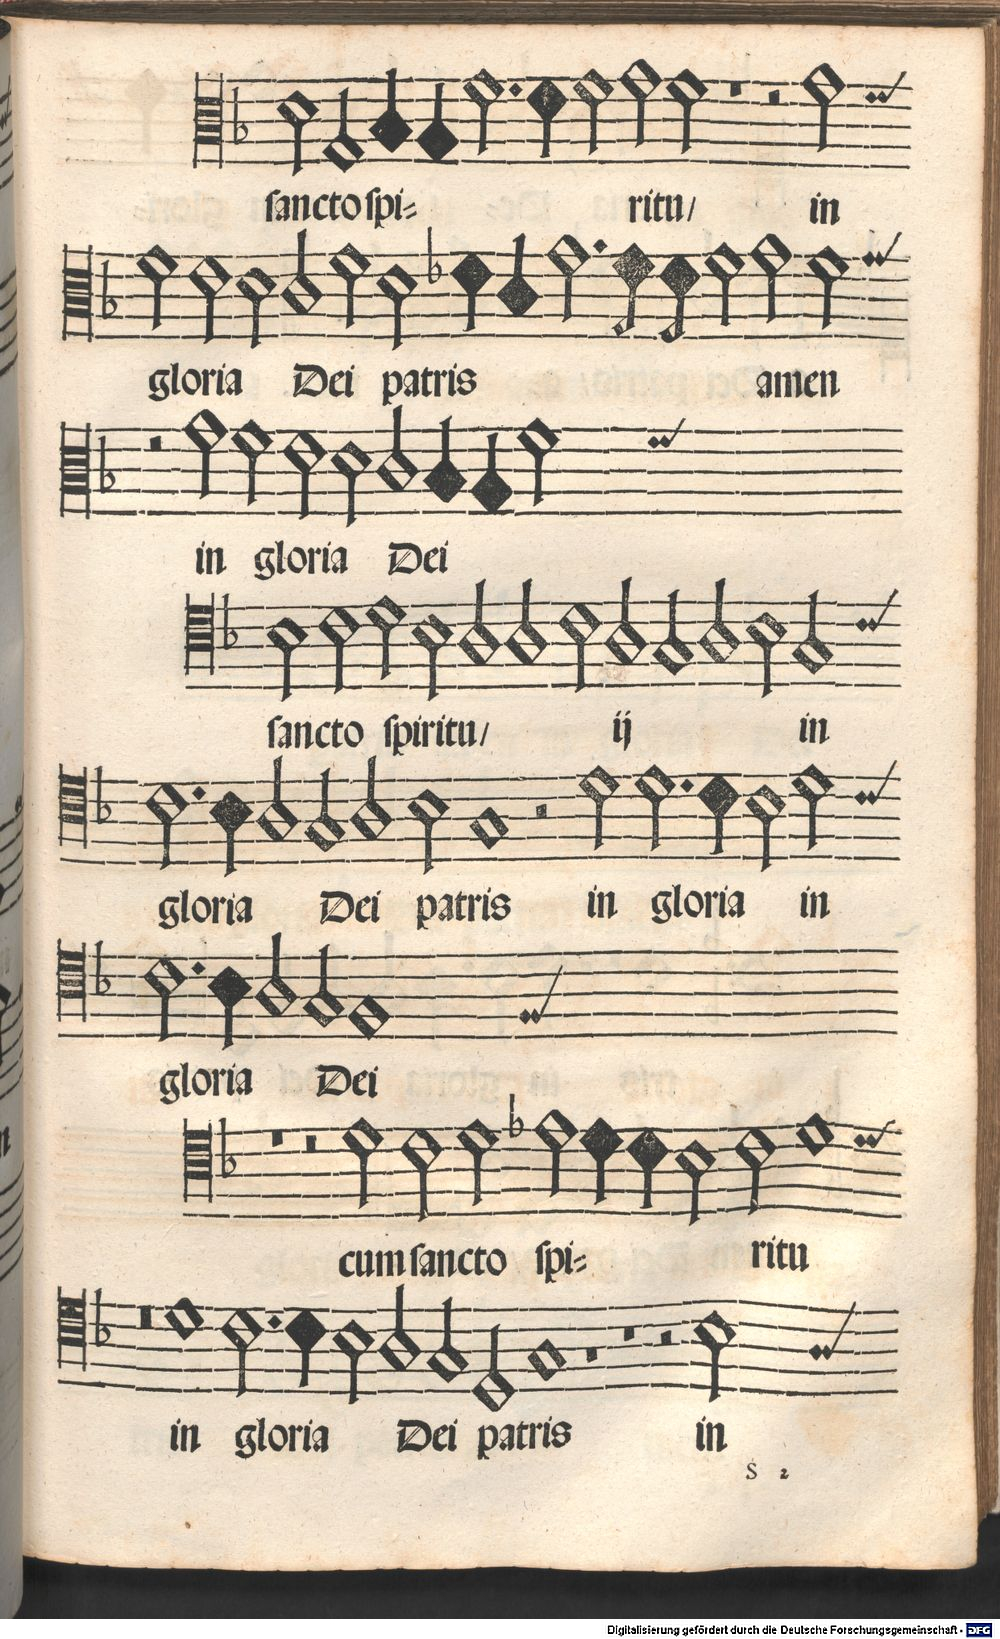 sancto spi⸗ ritu/ in
gloria Dei patris amen
in gloria Dei
sancto spiritu/ ij in
gloria Dei patris in gloria in
gloria Dei
cum sancto spi⸗ ritu
in gloria Dei patris in
S 2
Digitalisierung gefördert durch die Deutsche Forschungsgemeinschaft - DFG